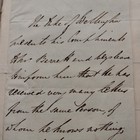 The Duke of Wellington
presents his Compliments
to
and begs leave
to inform him that he has
received very many letters
from the same Person, of
whom he knows nothing